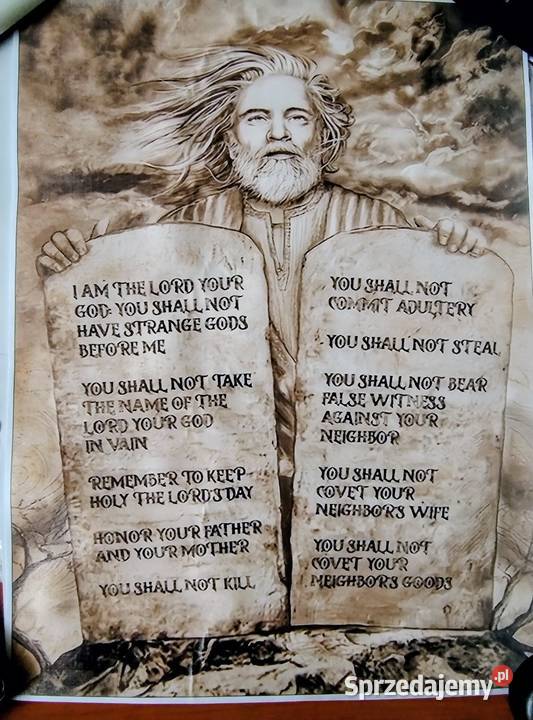 I AM THE LORD YOUR
GOD: YOU SHALL NOT
HAVE STRANGE GODS
BEFORE ME
YOU SHALL NOT TAKE
THE NAME OF THE
LORD YOUR GOD
IN VAIN
REMEMBER TO KEEP
HOLY THE LORD'S DAY
HONOR YOUR FATHER
AND YOUR MOTHER
YOU SHALL NOT KILL
YOU SHALL NOT
COMMIT ADULTERY
YOU SHALL NOT STEAL
YOU SHALL NOT BEAR
FALSE WITNESS
AGAINST YOUR
NEIGHBOR
YOU SHALL NOT
COVET YOUR
NEIGHBORS WIFE
YOU SHALL NOT
COVET YOUR
NEIGHBORS GOODS
Sprzedajemy.pl